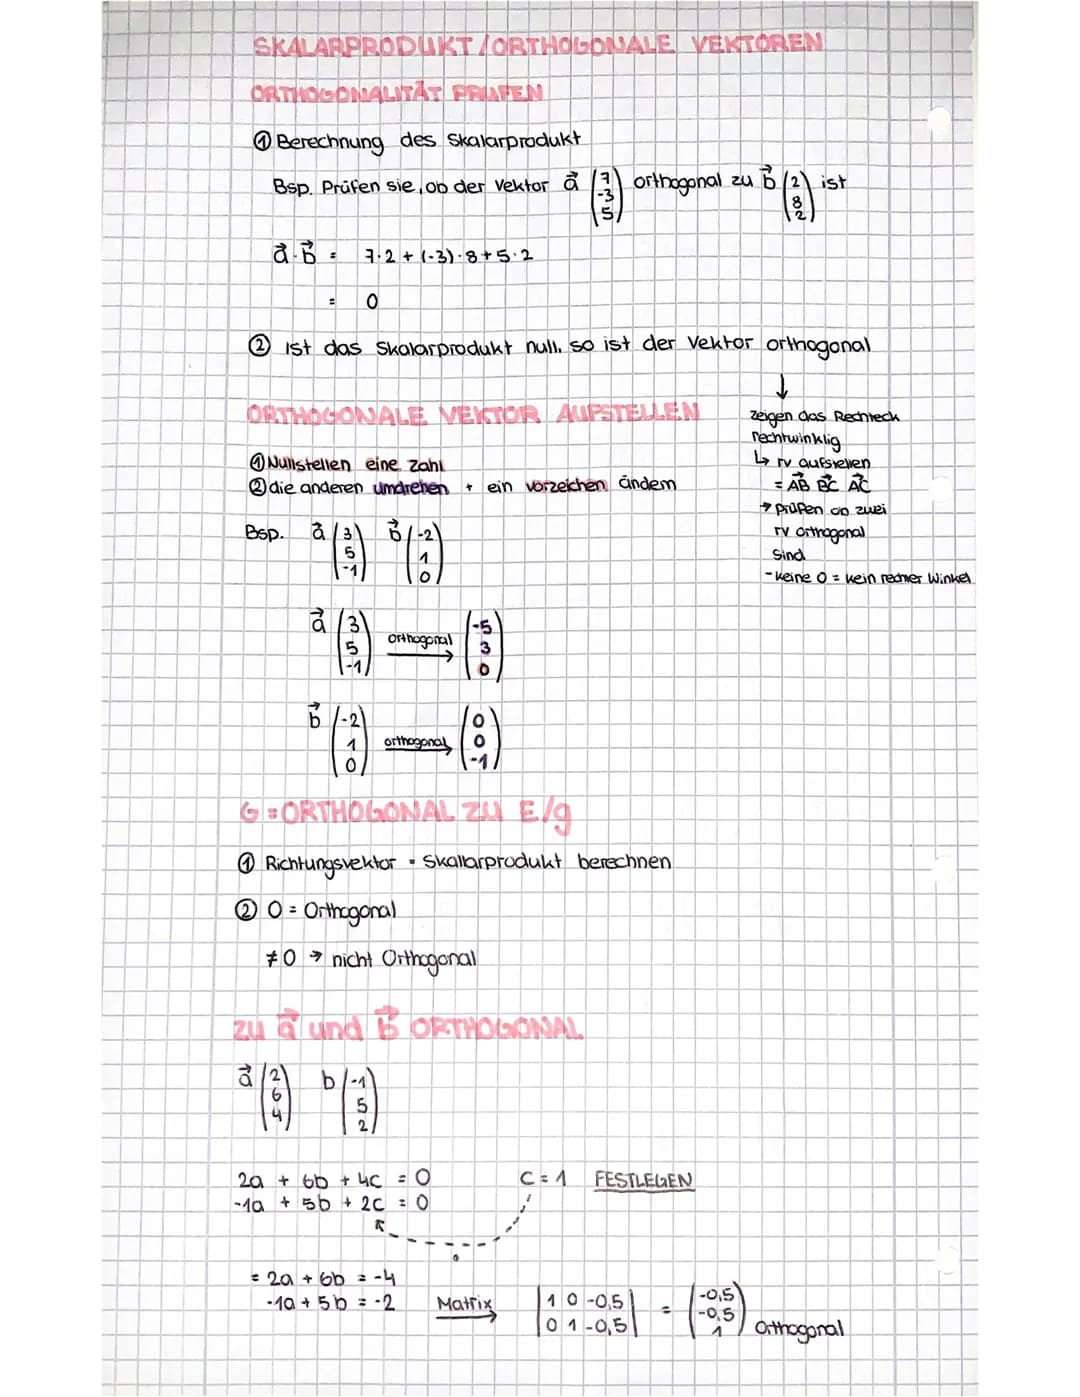 SKALARPRODUKT/ORTHOGONALE VEKTOREN
ORTHOGONALITÄT PRÜFEN
① Berechnung des Skalarprodukt
Bsp. Prüfen sie, ob der Vektor a⃗ (7 -3 5) orthogonal zu b⃗ (2 8 2) ist
a⃗·b⃗ = 7·2 + (-3)·8 + 5·2
= 0
② ist das Skalarprodukt null, so ist der Vektor orthogonal
↓
zeigen das Rechteck
rechtwinklig
↳ rv aufstellen
= AB⃗ BC⃗ AC⃗
→ prüfen ob zwei
rv orthogonal
sind
- keine 0 = kein rechter Winkel
ORTHOGONALE VEKTOR AUFSTELLEN
① Nullstellen eine Zahl
② die anderen umdrehen + ein vorzeichen ändern
Bsp. a⃗ (3 5 -1) b⃗ (-2 1 0)
a⃗ (3 5 -1) orthogonal → (-5 3 0)
b⃗ (-2 1 0) orthogonal → (0 0 -1)
G = ORTHOGONAL ZU E/g
① Richtungsvektor · Skallarprodukt berechnen
② 0 = Orthogonal
≠0 → nicht Orthogonal
zu a⃗ und b⃗ ORTHOGONAL
a⃗ (2 6 4) b (-1 5 2)
2a + 6b + 4c = 0
-1a + 5b + 2c = 0
C = 1 FESTLEGEN
= 2a + 6b = -4
-1a + 5b = -2
Matrix →
|1 0 -0,5|
|0 1 -0,5|
= (-0,5 -0,5 1) Orthogonal